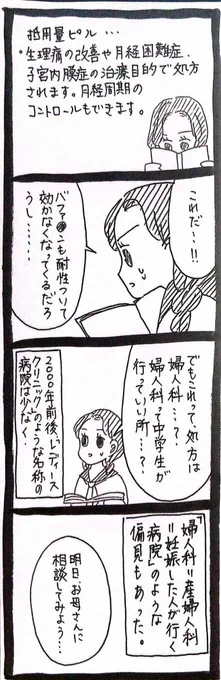 低用量ピル…
。生理痛の改善や月経困難症、
子宮内膜症の治療目的で処方
されます。月経周期の
コントロールもできます。
これだ…!!
バファ●ンも耐性ついて
効かなくなってくるだろ
うし……
でもこれって、処方は
婦人科…?
婦人科って中学生が
行っていい所…?
2000年前後、「レディース
クリニック」のような名称の
病院は少なく…
「婦人科=産婦人科
=妊娠した人が行く
病院」のような
偏見もあった。
明日、お母さんに
相談してみよう…